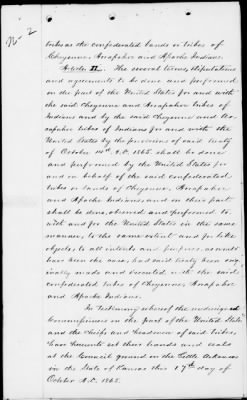 No 2
tribes as the confederated bands or tribes of
Cheyenne Arrapahoe and Apache Indians.
Article II. The several terms, stipulations
and agreements to be done and performed
on the part of the United States for and with
the said Cheyenne and Arrapahoe tribes of
Indians and by the said Cheyenne and Arra-
pahoe tribes of Indians for and with the
United States by the provisions of said treaty
of October 14th A.D. 1865. shall be done
and performed by the United States for
and in behalf of the said confederated
tribes or bands of Cheyenne, Arrapahoe
and Apache Indians and on their part
shall be done, observed and performed to
with and for the United States in the same
manner, to the same extent and for like
objects, to all intents and purposes, as would
have been the case, had said treaty been orig-
inally made and executed with the said
confederated tribes of Cheyenne, Arrapahoe
and Apache Indians.
In testimony whereof the undersigned
Commissioners on the part of the United States
and the Chiefs and Headmen of said tribes,
have hereunto set their hands and seals
at the Council ground on the Little Arkansas
in the State of Kansas this 17th day of
October A.D. 1865.